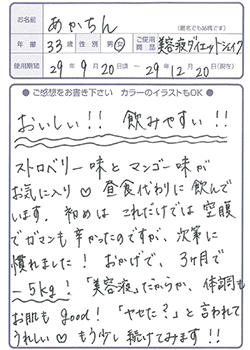 お名前 あかちん
（匿名でも結構です）
年齢 33歳 性別 男・女 ご使用商品 美容液ダイエットシェイク
使用期間 29年9月20日 〜 29年12月20日(現在)
● ご感想をお書き下さい カラーのイラストもOK ●
おいしい!! 飲みやすい!!
ストロベリー味とマンゴー味が
お気に入り♡ 昼食代わりに飲んで
います。初めはこれだけでは空腹
でガマンも辛かったのですが、次第に
慣れました！おかげで、3ヶ月で
−5kg！「美容液」だからか、体調も
お肌もgood！「ヤセた？」と言われて
うれしい♡もう少し続けてみます!!